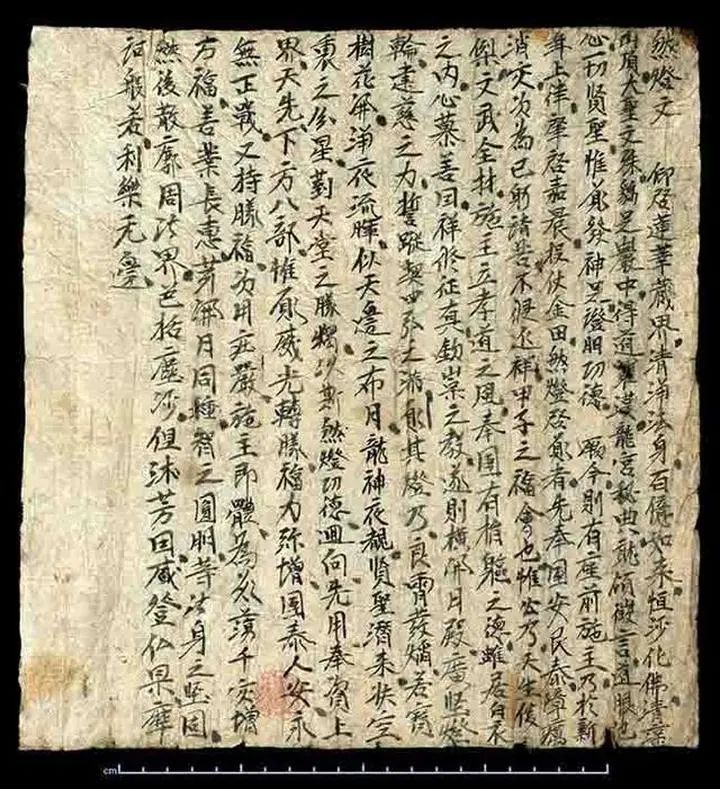 然燈文　仰啓蓮華藏界清淨法身百億如來恒沙化佛清凉
山頂大聖文殊鷄足巖中得道羅漢龍宮秘典就嶺微言道眼他
心一切賢聖惟願發神足證明功德　厥今則有座前施主乃於新
年上律肇啓嘉晨投仗金田然燈啓願者先奉國安民泰障癘
消灾次為己躬請吉不近祥甲子之福會也惟公乃天生俊
傑文武全材施主立孝道之風奉國有捐軀之德雖居白衣
之内心慕善因祥修征真勤崇之教遂則橫開月殿廣竪燈
輪建慈之力誓蹤契四弘之滿願其燈乃良霄發焰若寶
樹花開淨夜流暉似天邊之布月龍神夜覩賢聖濟來狀空
裏之分星對天堂之勝獨以斯然燈功德迴向先用奉資上
界天先下方八部惟願威光轉勝福力弥增國泰人安永
無正戰又持勝福勿用莊嚴施主即體為願蕩千灾增
万福善業長惠芽開月同種智之圓明等法身之堅固
然後散霑周法界包括塵沙俱沐芳因咸登仏果摩
訶般若利樂无邊
cm